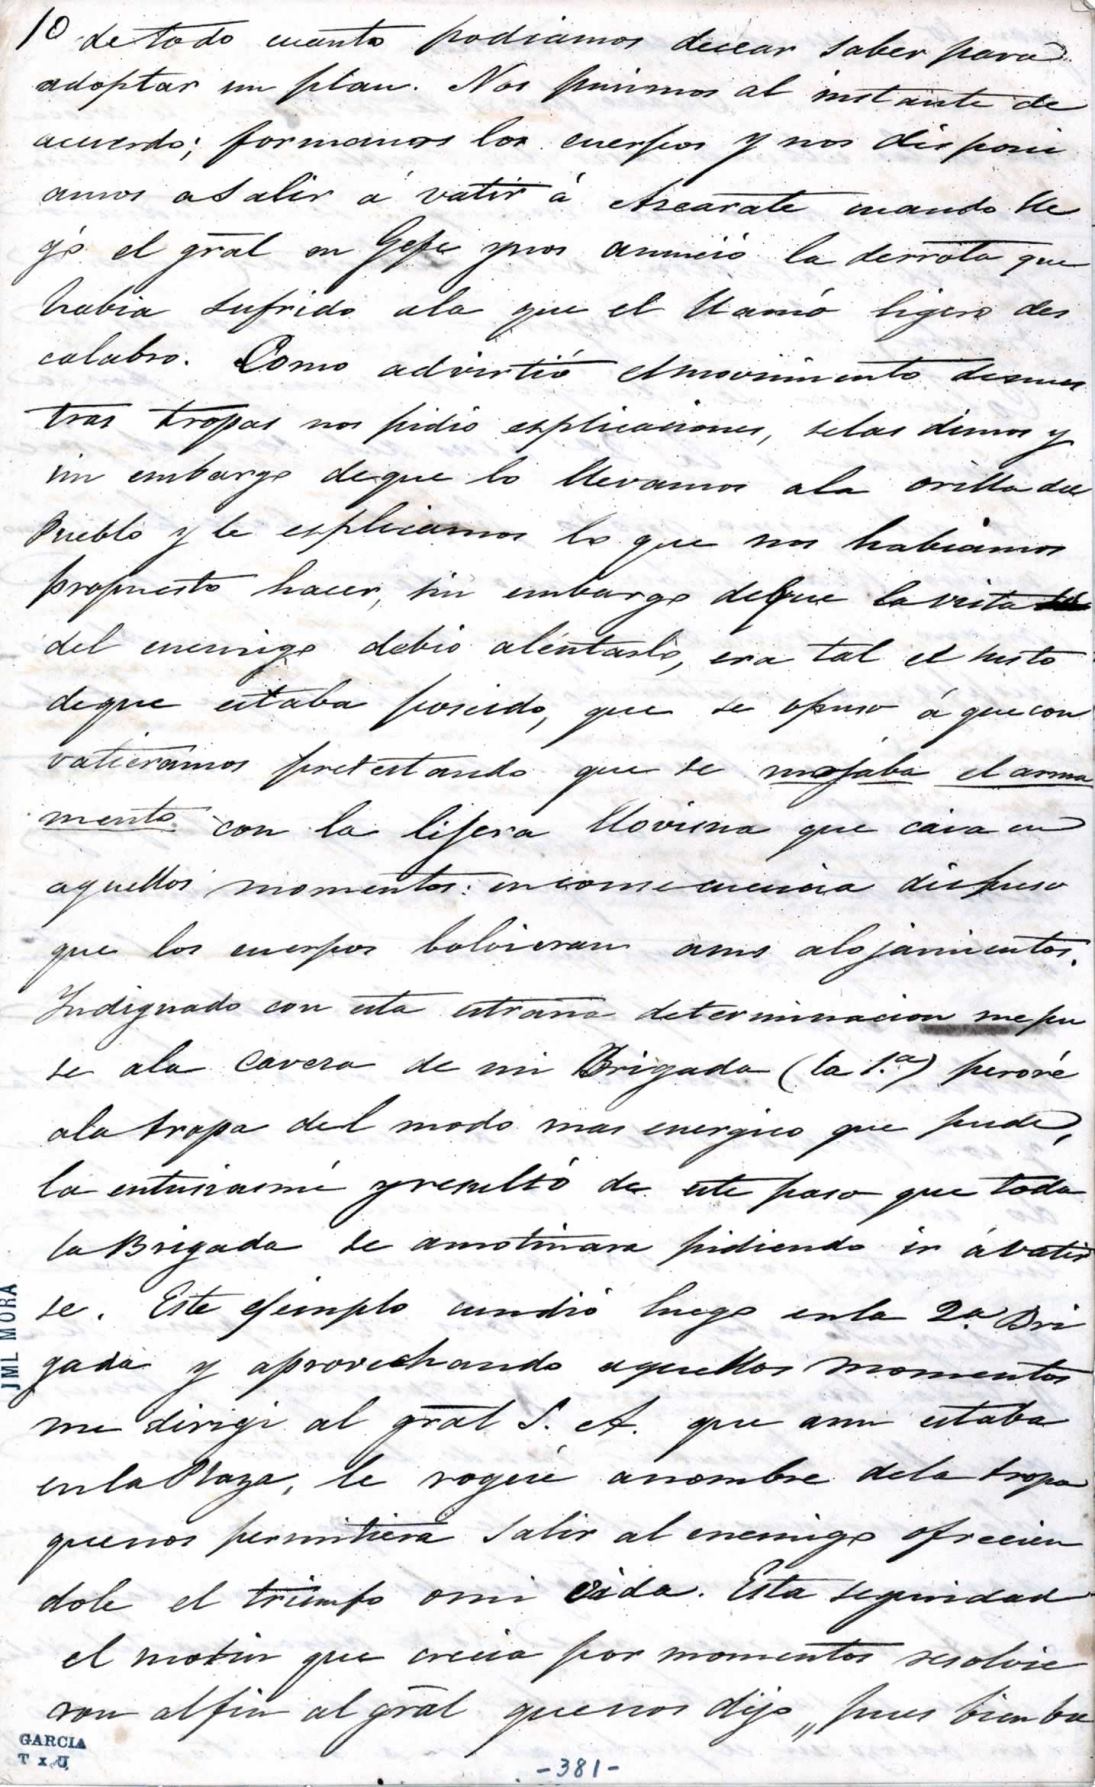 10 de todo cuanto podiamos decear saber para
adoptar un plan. Nos pusimos al instante de
acuerdo; formamos los cuerpos y nos disponi
amos a salir á vatir á Ascarate cuando lle
gó el gral en Gefe ynos anunció la derrota que
habia sufrido ala que el llamó ligero des
calabro. Como advirtió elmovimiento denues
tras tropas nos pidió esplicaciones, selas dimos y
sin embargo deque lo llevamos ala orilla del
Pueblo y le esplicamos lo que nos habiamos
propuesto hacer, sin embargo deque la vista
del enemigo debió alentarlo, era tal el susto
deque estaba poseido, que se opuso á que con
vatieramos pretestando que se mojaba el arma
mento con la lijera llovisna que caia en
aquellos momentos: enconsecuencia dispuso
que los cuerpos bolvieran asus alojamientos.
Indignado con esta estraña determinacion mepu
se ala cavesa de mi Brigada (la 1.ª) peroré
ala tropa del modo mas energico que pude,
la entusiasmé yresultó de este paso que toda
la Brigada se amotinara pidiendo ir ávatir
se. Este ejemplo cundió luego enla 2.ª Bri
gada y aprovechando aquellos momentos
me dirigi al gral S. A. que aun estaba
enla Plaza, le rogué anombre dela tropa
quenos permitiera salir al enemigo ofrecien
dole el triunfo omi vida. Esta seguridad
el motin que crecia por momentos resolvie
ron alfin al gral quenos dijo „pues bien ba
JML MORA
GARCIA
T x U
-381-